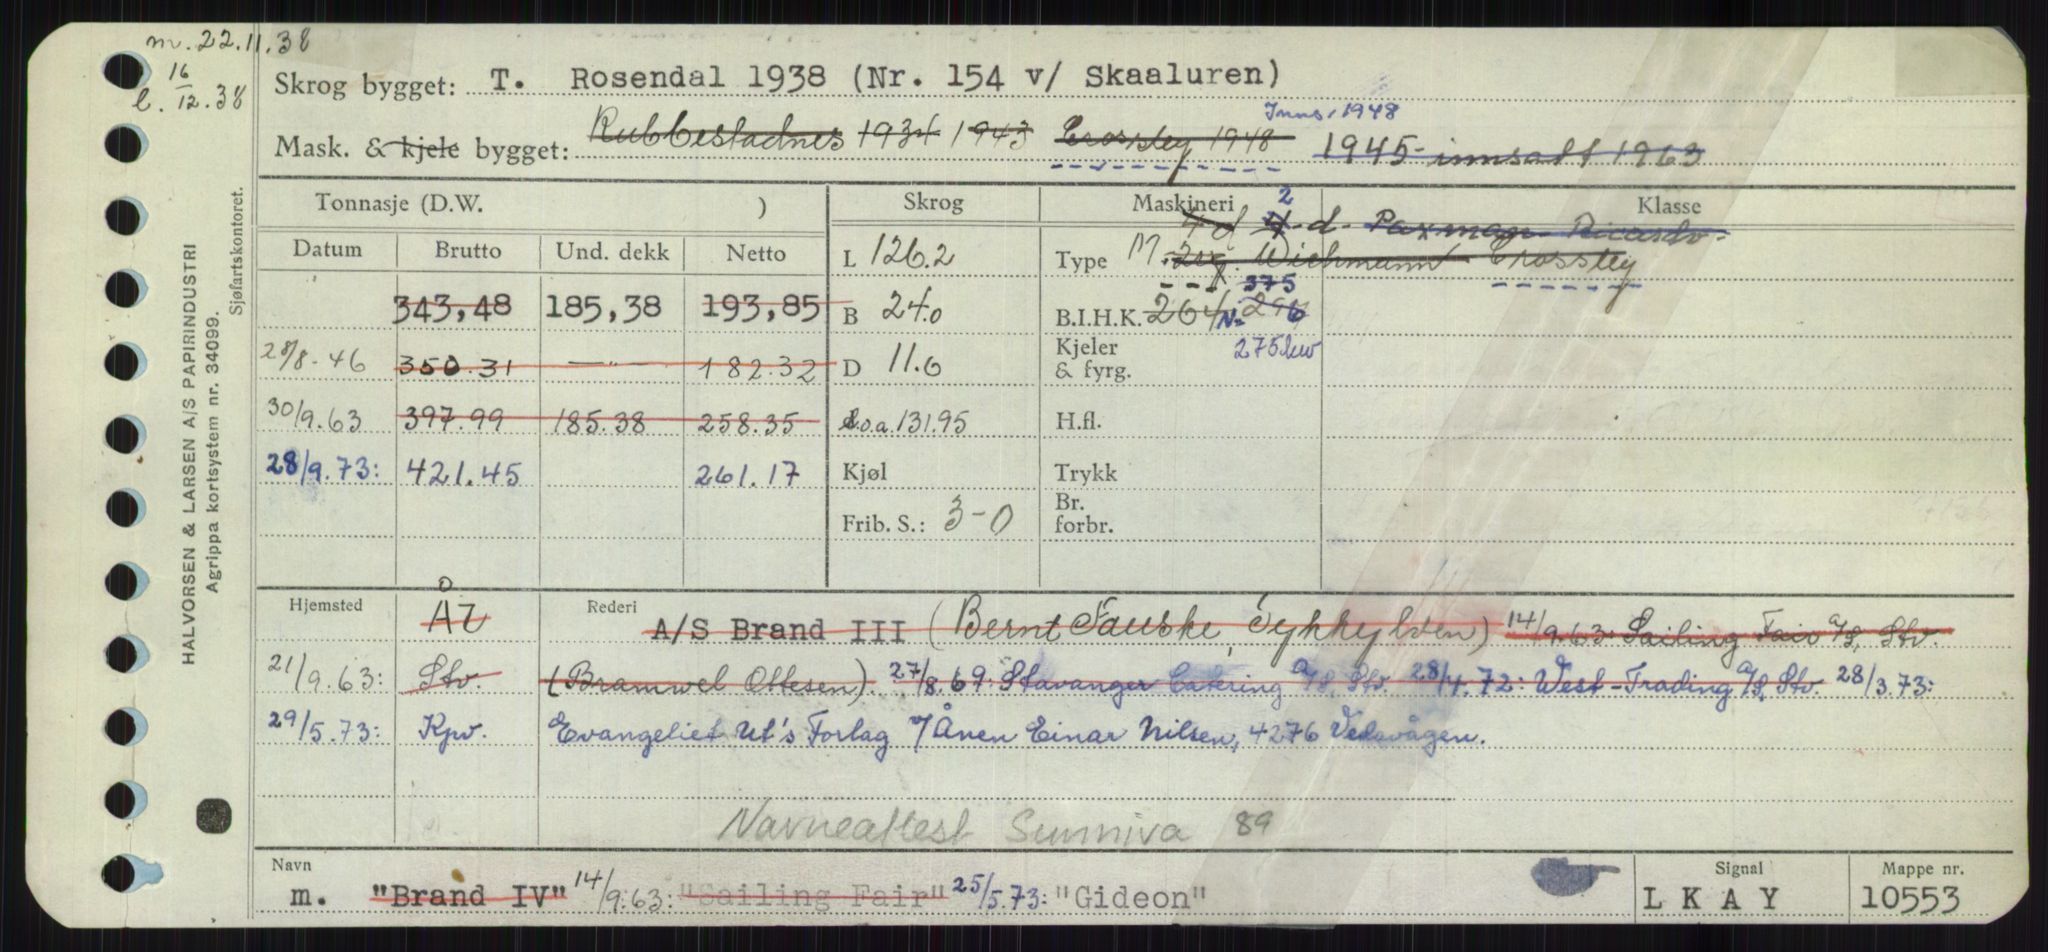 m. 22.11.38
16
l. 12.38
Skrog bygget: T. Rosendal 1938 (Nr. 154 v/ Skaaluren)
Inns. 1948
Mask. & kjele bygget: Rubbestadnes 1934 1943 Crossley 1948 1945 - innsatt 1963
Tonnasje (D.W. ) Skrog Maskineri Klasse
2
4 d 4-d. Paxman Ricardo.
Datum Brutto Und. dekk Netto L 126.2 Type M. 2vg. Wichmann Crossley
375
343,48 185,38 193,85 B 24.0 B.I.H.K. 264 N-
28/8-46 350.31 —"— 182.32 D 11.6 Kjeler & fyrg. 275 kw
30/9.63 397.99 185.38 258.35 L.o.a. 131.95 H.fl.
28/9.73: 421.45 261.17 Kjøl Trykk
Frib. S.: 3-0 Br. forbr.
Hjemsted Ål Rederi A/S Brand III (Bernt Fauske, Sykkylven) 14/9.63: Sailing Fair A/S, Stv.
21/9.63: Stv. (Bramwel Ottesen). 27/8.69: Stavanger Catering A/S, Stv. 28/4.72: West-Trading A/S, Stv. 28/3.73:
29/5.73: Kpv. Evangeliet Ut's Forlag v/ Ånen Einar Nilsen, 4276 Vedavågen.
Navneattest Sunniva 89
Navn m. "Brand IV" 14/9.63: "Sailing Fair" 25/5.73: "Gideon" Signal L K A Y Mappe nr. 10553
HALVORSEN & LARSEN A/S PAPIRINDUSTRI
Agrippa kortsystem nr. 34099.
Sjøfartskontoret.